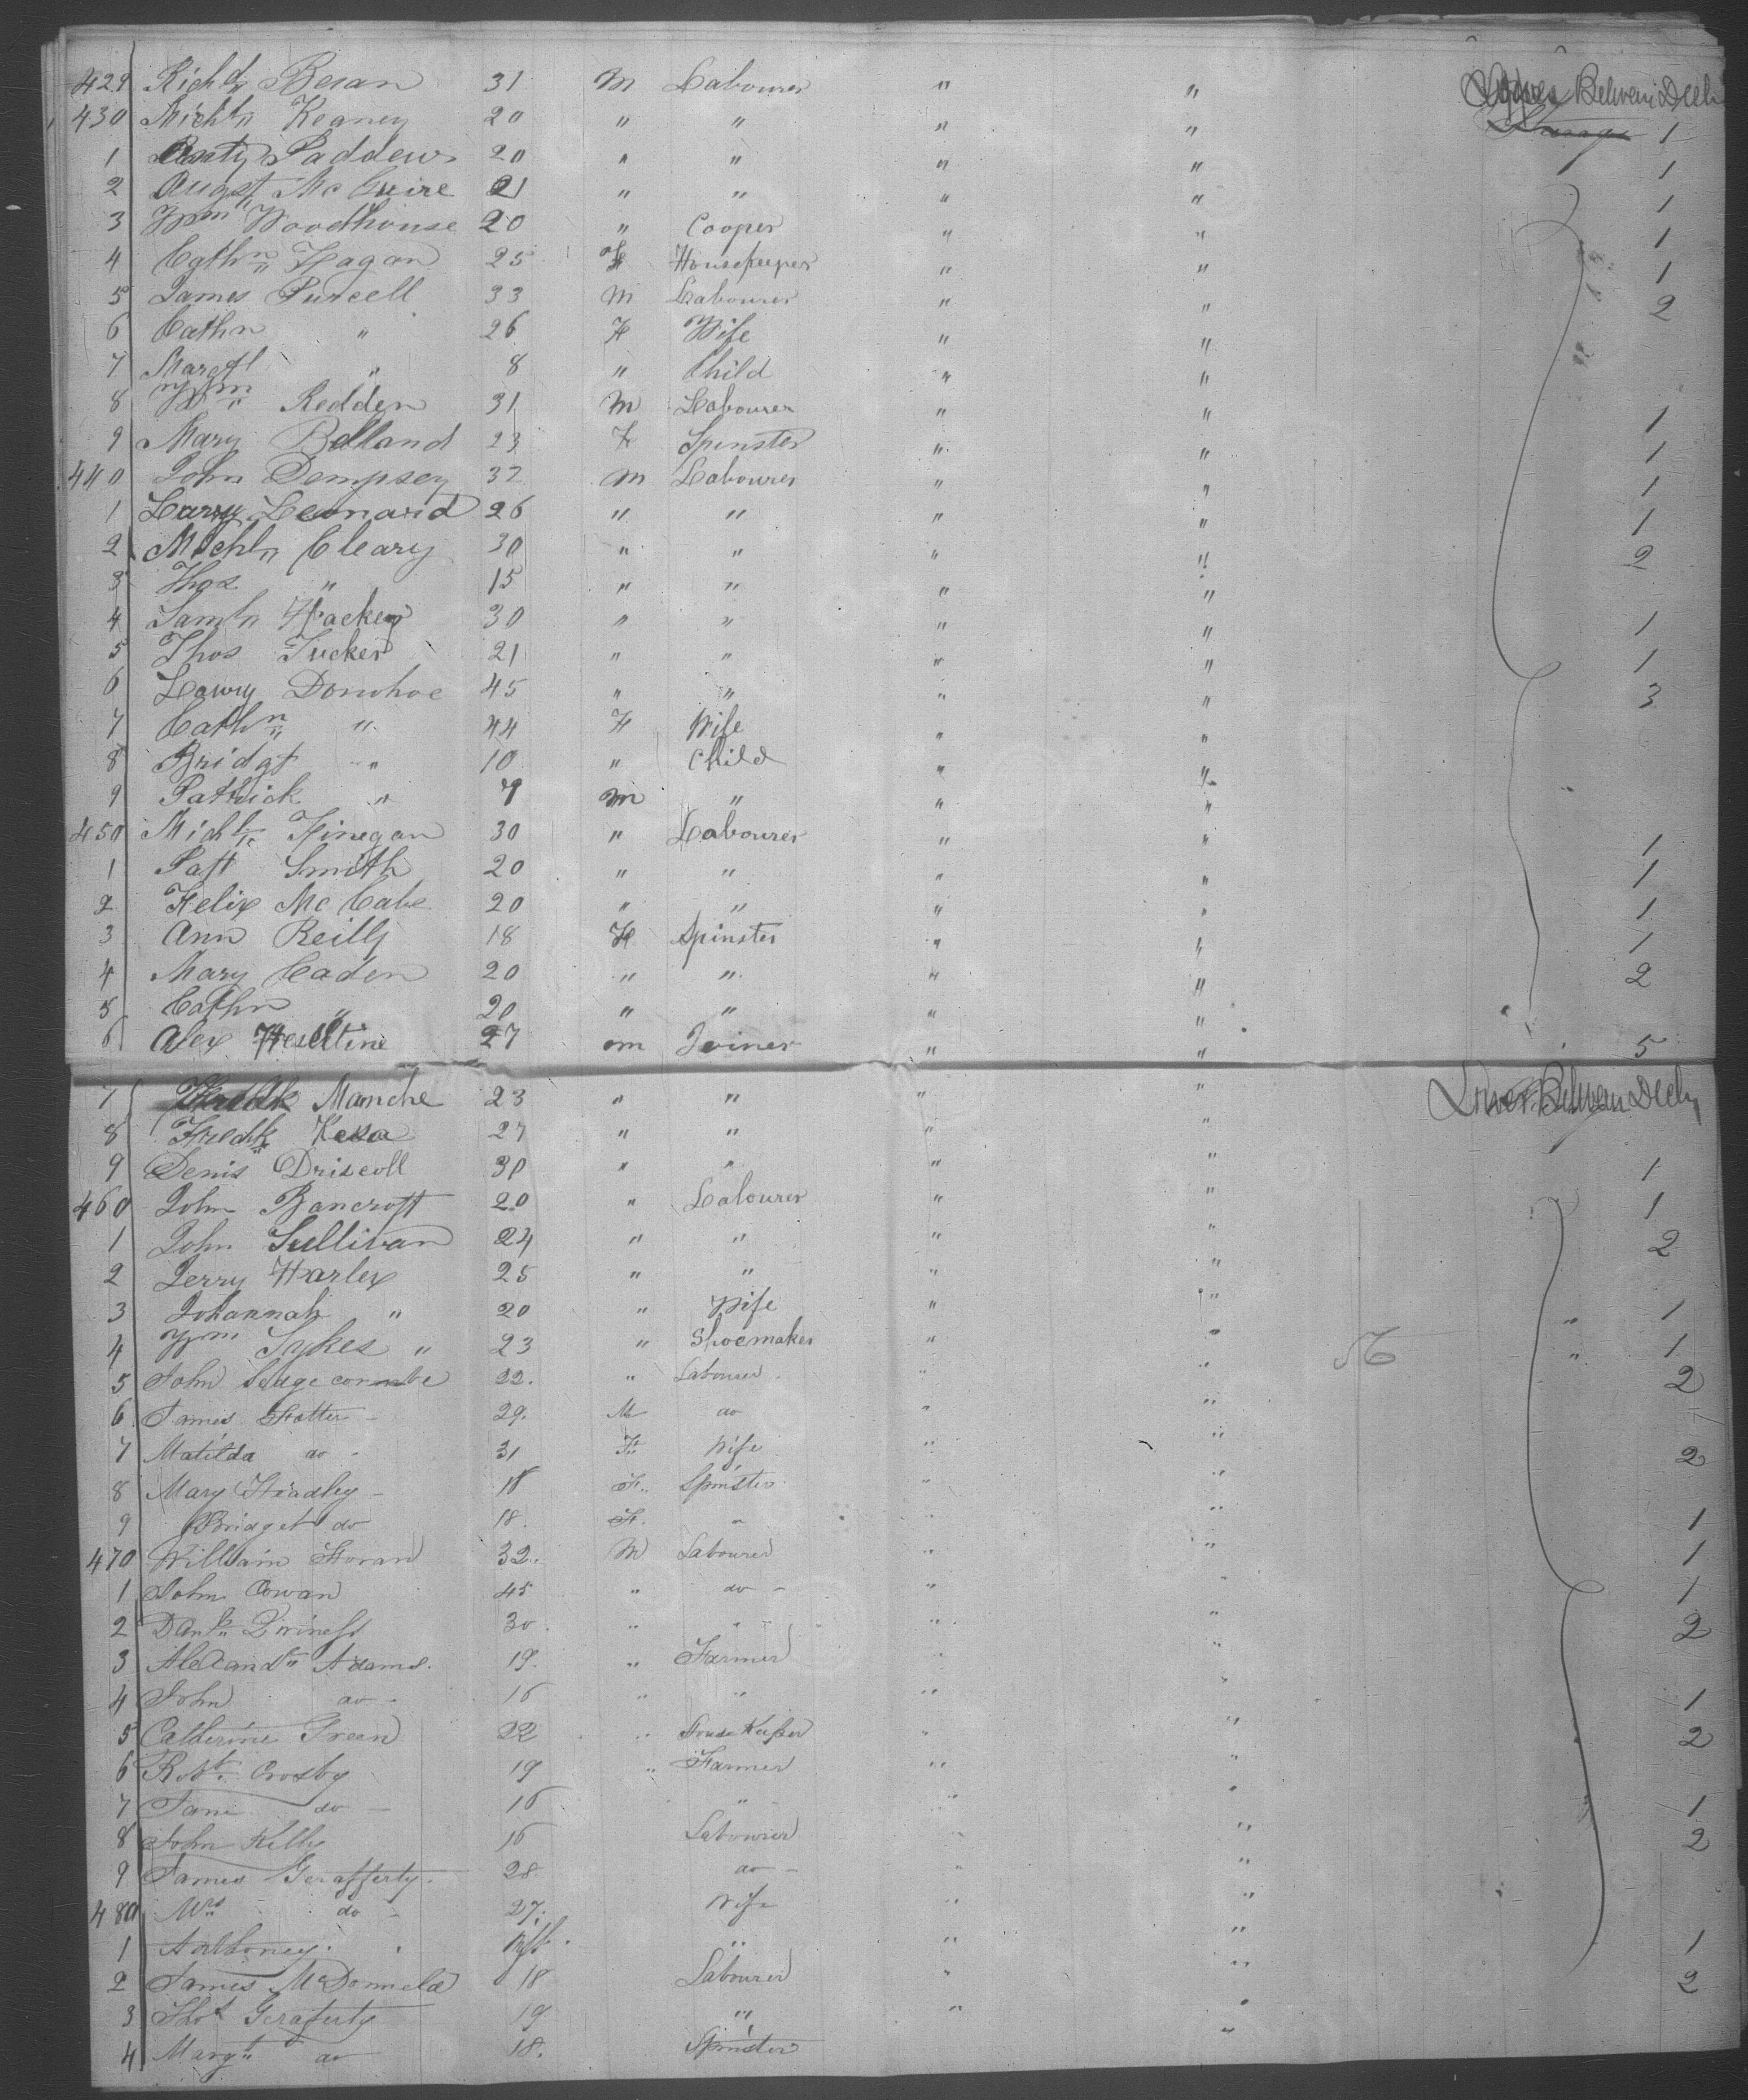 429 Richd Beran 31 M Labourer " " Upper Between Decks
430 Michl Keaney 20 " " " " 1
1 Anty Paddew 20 " " " " 1
2 Augst McGuire 21 " " " " 1
3 Wm Woodhouse 20 " Cooper " " 1
4 Cathn Fagan 25 F Housekeeper " " 1
5 James Purcell 33 M Labourer " " 2
6 Cathn " 26 F Wife " "
7 Margt " 8 " Child " "
8 Wm Redden 31 M Labourer " " 1
9 Mary Bolland 23 F Spinster " " 1
440 John Dempsey 32 M Labourer " " 1
1 Larry Leonard 26 " " " " 1
2 Michl Cleary 30 " " " " 2
3 Thos " 15 " " " "
4 Saml Hackey 30 " " " " 1
5 Thos Tucker 21 " " " " 1
6 Lawry Donohoe 45 " " " " 3
7 Cathn " 44 F Wife " "
8 Bridgt " 10 " Child " "
9 Patrick " 7 M " " "
450 Michl Finegan 30 " Labourer " " 1
1 Patt Smith 20 " " " " 1
2 Felix McCabe 20 " " " " 1
3 Ann Reilly 18 F Spinster " " 1
4 Mary Caden 20 " " " " 2
5 Cathn " 20 " " " "
6 Alex Heseltine 27 m Joiner " " 5
7 Fredk Manche 23 " " " " Lower Between Decks
8 Fredk 27 " " " "
9 Denis Driscoll 30 " " " " 1
460 John Bancroft 20 " Labourer " " 1
1 John Sullivan 24 " " " " 2
2 Jerry Harley 25 " " " "
3 Johannah " 20 " Wife " "
4 Wm Sykes " 23 " Shoemaker " " " 1
5 John 22. " Labourer " " " 1
6 James 29. M do " " 2
7 Matilda do 31 F Wife " "
8 Mary Headley 18 F Spinster " " 2
9 Bridget do 18. F " " "
470 William Horan 32 M Labourer " " 1
1 John Cowan 45 " do " " 1
2 Danl 30 " " " " 1
3 Alexandr Adams 19. " Farmer " " 2
4 John do 16 " " " "
5 Catherine Green 22 " House Keeper " " 1
6 Robt Crosby 19 " Farmer " " 2
7 Jane do 16 " " "
8 John Kelly 16 Labourer " " 1
9 James Gerafferty 28 do " " 2
480 Mrs do 27. Wife " "
1 Anthoney " " "
2 James McDonneld 18 Labourer " " 1
3 Thos Geraferty 19 " " " 2
4 Margt do 18. Spinster "